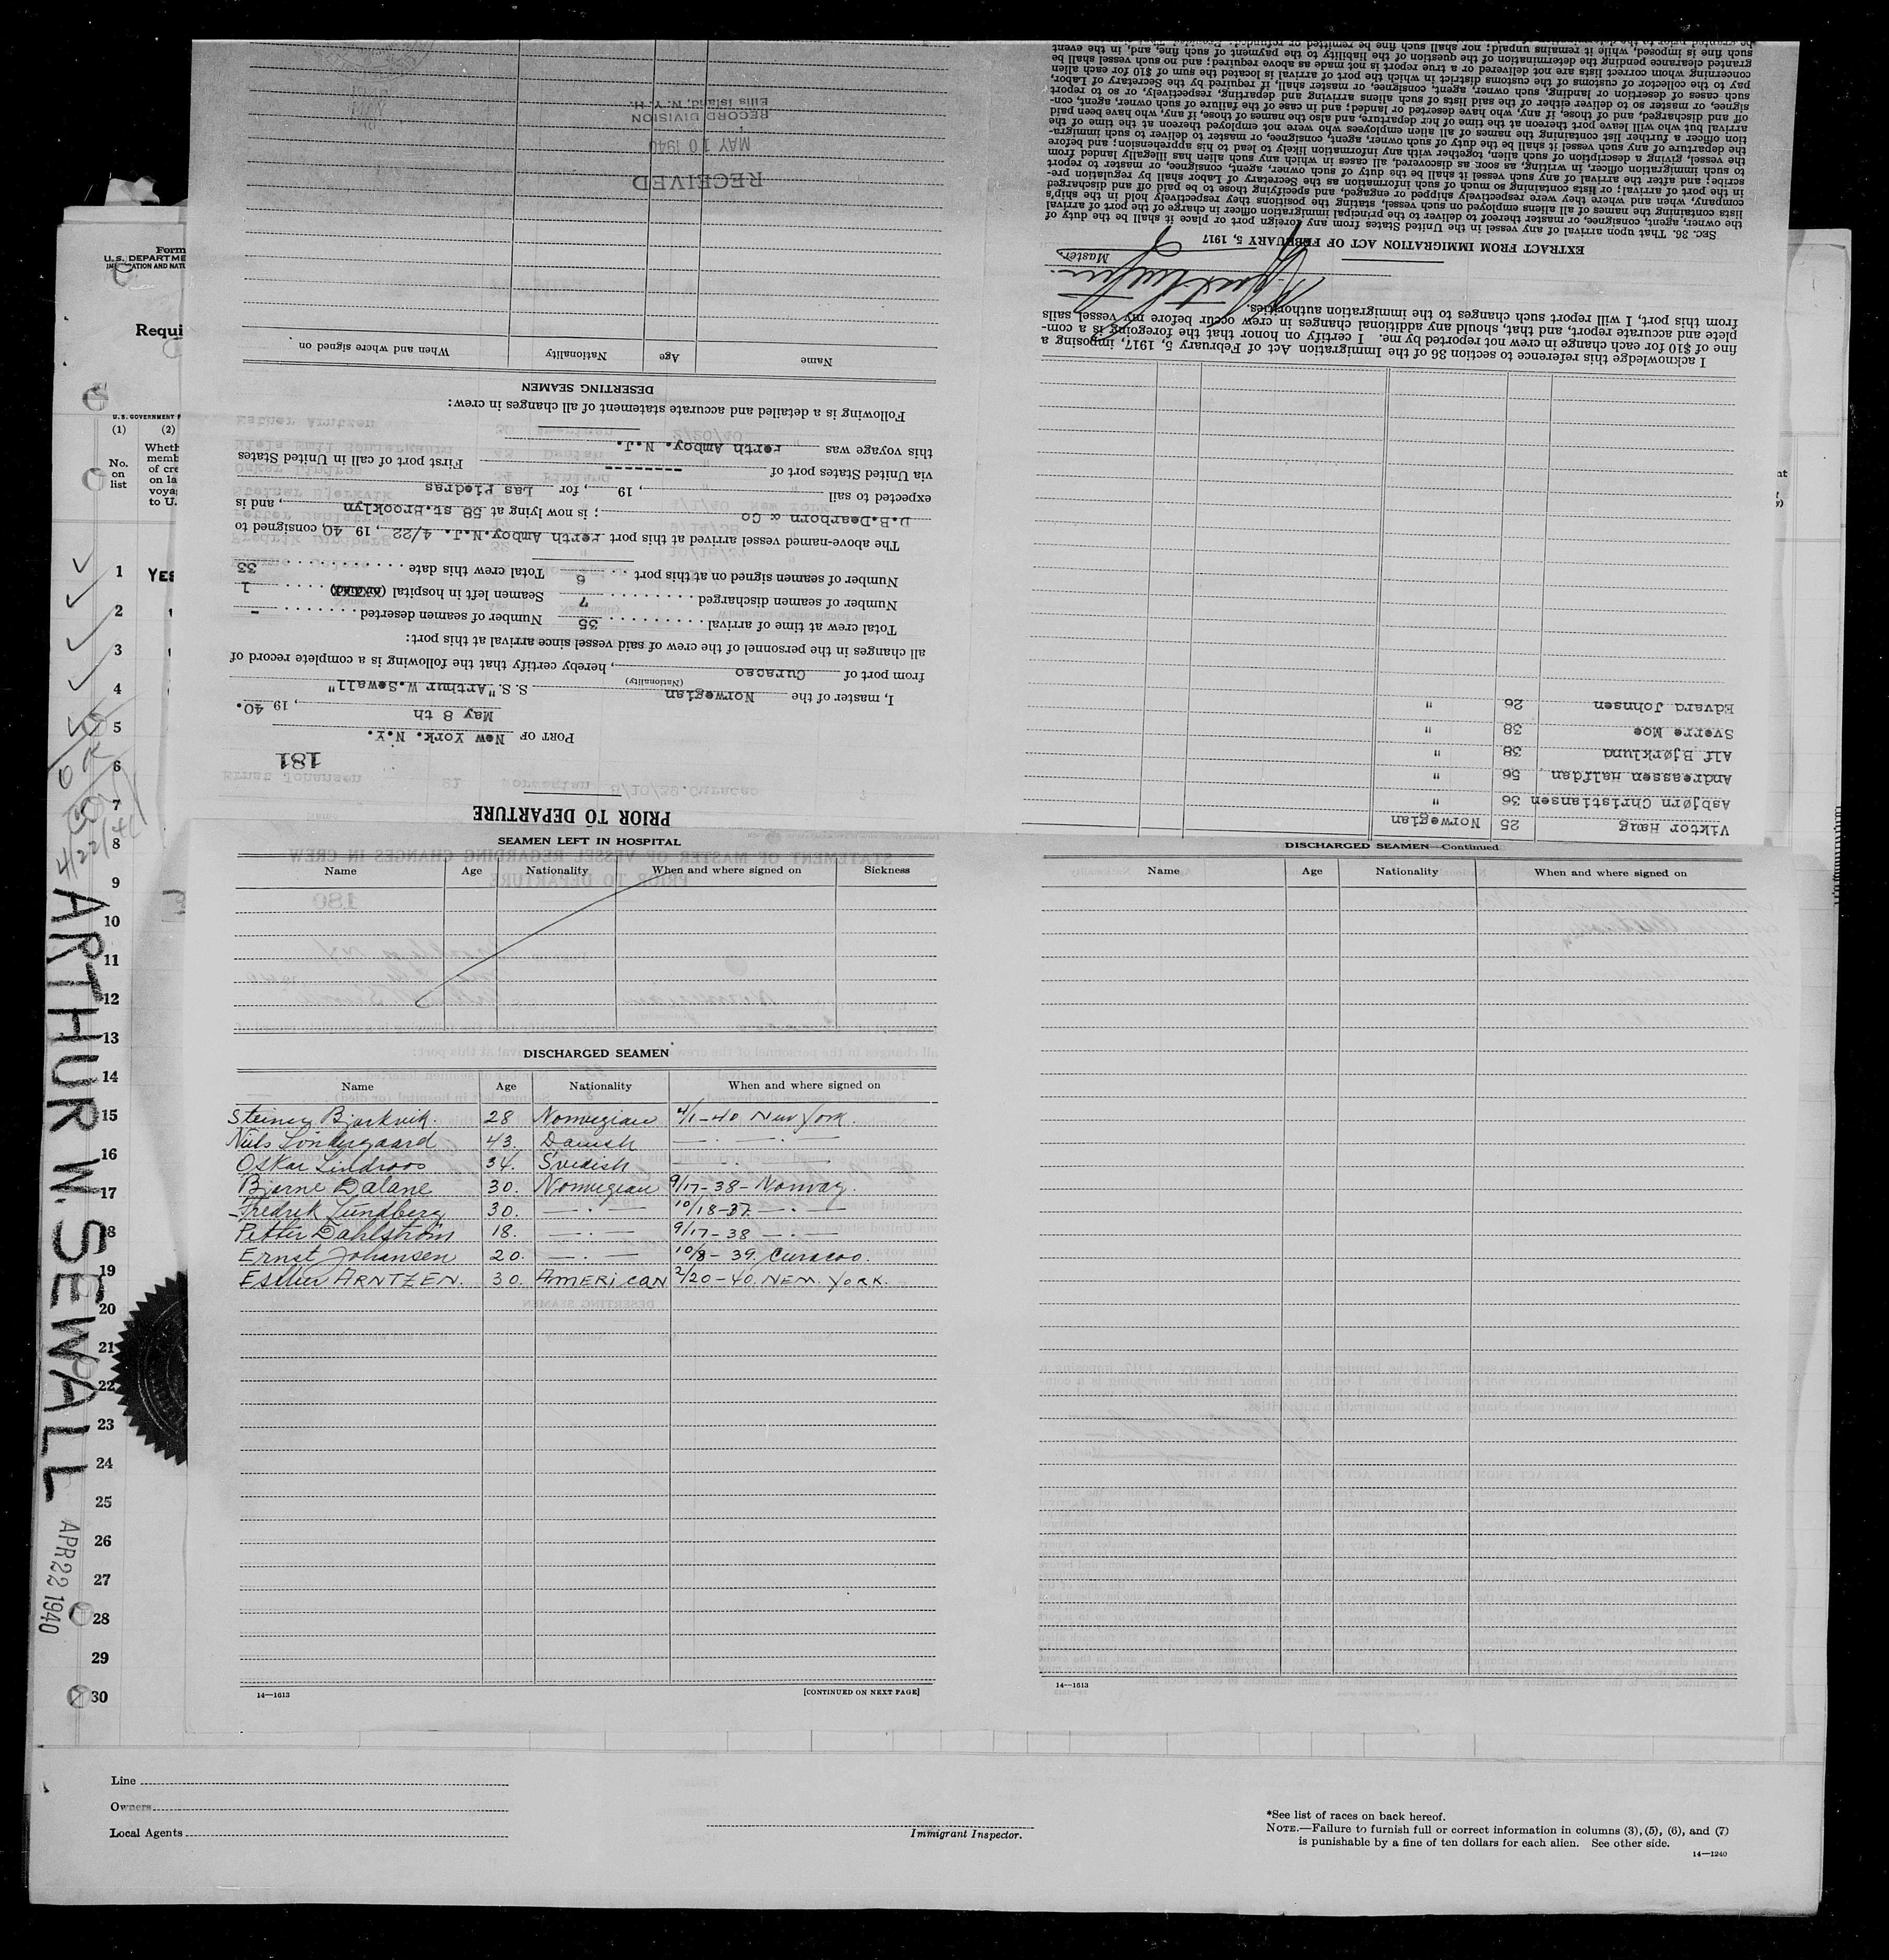 Form
U. S. DEPARTME
ATION AND NATU
Requi
U. S. GOVERNMENT P
(1) (2)
No. on list
Wheth
memb
of cre
on la
voya
to U.
1 YES
2
3
4
5
6
7
8
9
10
11
12
13
14
15
16
17
18
19
20
21
22
23
24
25
26
27
28
29
30
4/22/40
ARTHUR W. SEWALL
APR 22 1940
PRIOR TO DEPARTURE
181
PORT OF New York. N.Y.
May 8 th, 19 40.
I, master of the Norwegian S. S. "Arthur W.Sewall"
(Nationality)
from port of Curacao, hereby certify that the following is a complete record of
all changes in the personnel of the crew of said vessel since arrival at this port:
Total crew at time of arrival 35 Number of seamen deserted -
Number of seamen discharged 7 Seamen left in hospital (or died) 1
Number of seamen signed on at this port 6 Total crew this date 33
The above-named vessel arrived at this port Perth Amboy.N.J. 4/22, 19 40, consigned to
D.B.Dearborn & Co; is now lying at 58 st.Brooklyn, and is
expected to sail , 19 , for Las Piedras
via United States port of -------- First port of call in United States
this voyage was Perth Amboy. N.J.
Following is a detailed and accurate statement of all changes in crew:
DESERTING SEAMEN
Name Age Nationality When and where signed on
RECEIVED
MAY 10 1940
RECORD DIVISION
Ellis Island, N. Y. H.
Viktor Haug 25 Norwegian
Asbjørn Christiansen 36 "
Andreassen Halfdan 56 "
Alf Bjørklund 38 "
Sverre Moe 38 "
Edvard Johnsen 26 "
I acknowledge this reference to section 36 of the Immigration Act of February 5, 1917, imposing a
fine of $10 for each change in crew not reported by me. I certify on honor that the foregoing is a com-
plete and accurate report, and that, should any additional changes in crew occur before my vessel sails
from this port, I will report such changes to the immigration authorities.
Master.
EXTRACT FROM IMMIGRATION ACT OF FEBRUARY 5, 1917
SEC. 36. That upon arrival of any vessel in the United States from any foreign port or place it shall be the duty of
the owner, agent, consignee, or master thereof to deliver to the principal immigration officer in charge of the port of arrival
lists containing the names of all aliens employed on such vessel, stating the positions they respectively hold in the ship's
company, when and where they were respectively shipped or engaged, and specifying those to be paid off and discharged
in the port of arrival; or lists containing so much of such information as the Secretary of Labor shall by regulation pre-
scribe; and after the arrival of any such vessel it shall be the duty of such owner, agent, consignee, or master to report
to such immigration officer, in writing, as soon as discovered, all cases in which any such alien has illegally landed from
the vessel, giving a description of such alien, together with any information likely to lead to his apprehension; and before
the departure of any such vessel it shall be the duty of such owner, agent, consignee, or master to deliver to such immigra-
tion officer a further list containing the names of all alien employees who were not employed thereon at the time of the
arrival but who will leave port thereon at the time of her departure, and also the names of those, if any, who have been paid
off and discharged, and of those, if any, who have deserted or landed; and in case of the failure of such owner, agent, con-
signee, or master so to deliver either of the said lists of such aliens arriving and departing, respectively, or so to report
such cases of desertion or landing, such owner, agent, consignee, or master shall, if required by the Secretary of Labor,
pay to the collector of customs of the customs district in which the port of arrival is located the sum of $10 for each alien
concerning whom correct lists are not delivered or a true report is not made as above required; and no such vessel shall be
granted clearance pending the determination of the question of the liability to the payment of such fine, and, in the event
such fine is imposed, while it remains unpaid; nor shall such fine be remitted or refunded:
SEAMEN LEFT IN HOSPITAL
Name Age Nationality When and where signed on Sickness
DISCHARGED SEAMEN
Name Age Nationality When and where signed on
Steinar Bjorkvik. 28 Norwegian 4/1-40 New York.
Niels Sondergaard 43. Danish —.—.—
Oskar Lindroos 34. Svedish —.—
Bjarne Dalane 30. Norwegian 9/17-38- Norway.
Fredrik Lundberg 30. —.— 10/18-37. —.—
Petter Dahlstrom 18. —.— 9/17-38 —.—
Ernst Johansen 20. —.— 10/8-39. Curacao.
Esther ARNTZEN. 30. AMERICAN 2/20-40. NEW. YORK.
14—1613 [CONTINUED ON NEXT PAGE]
DISCHARGED SEAMEN—Continued
Name Age Nationality When and where signed on
14—1613
Line
Owners
Local Agents
Immigrant Inspector.
*See list of races on back hereof.
NOTE.—Failure to furnish full or correct information in columns (3), (5), (6), and (7)
is punishable by a fine of ten dollars for each alien. See other side.
14—1240